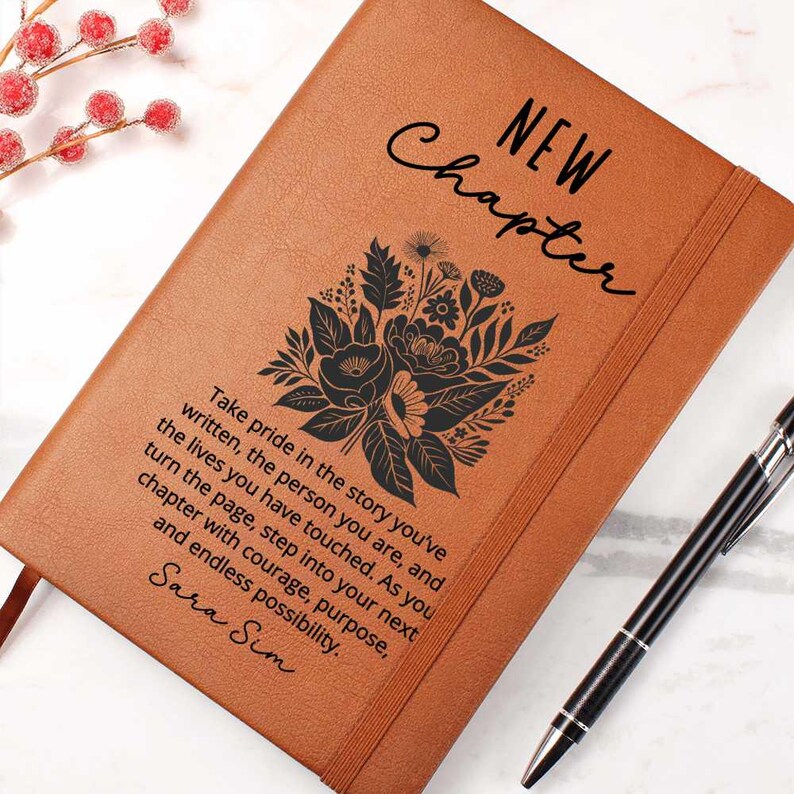 NEW
Chapter
Take pride in the story you've
written, the person you are, and
the lives you have touched. As you
turn the page, step into your next
chapter with courage, purpose,
and endless possibility.
Sara Sim